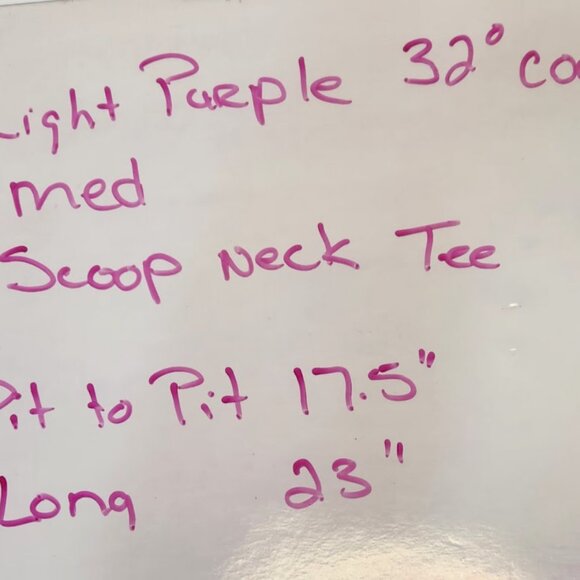 Light Purple 32° coo
med
Scoop Neck Tee
Pit to Pit 17.5"
Long 23"